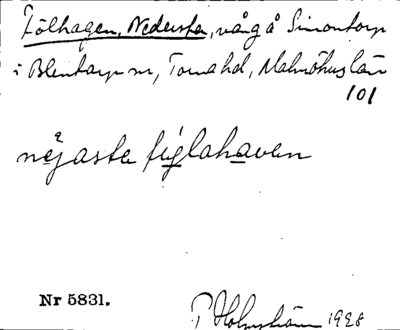 Fölhagen, Nedersta, vång å Simontorp
i Blentarp sn, Torna hd, Malmöhus län
101
nejaste fyglahaven
Nr 5831.
P Holmström 1928